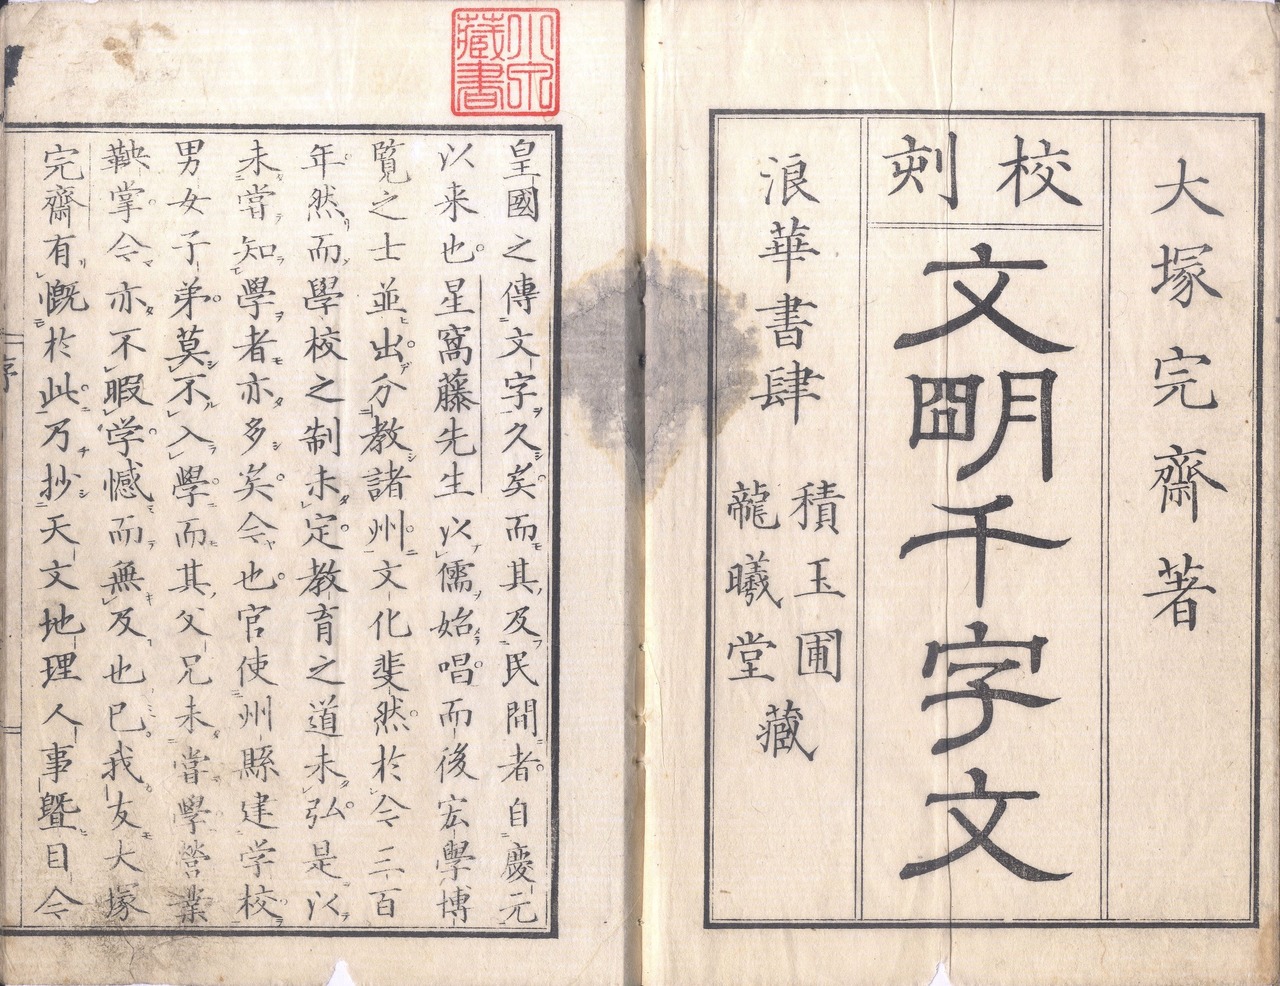 大塚完齋著
校刻
文明千字文
浪華書肆
積玉圃
龍曦堂
藏
小泉藏書
皇國之傳文字久矣而其及民間者自慶元
以来也星窩藤先生以儒始唱而後宏學博
覽之士並出分教諸州文化斐然於今三百
年然而學校之制未定教育之道未弘是以
未嘗知學者亦多矣今也官使州縣建学校
男女子弟莫不入學而其父兄未嘗學營業
鞅掌今亦不暇学憾而無及也已我友大塚
完齋有慨於此乃抄天文地理人事曁目今
序